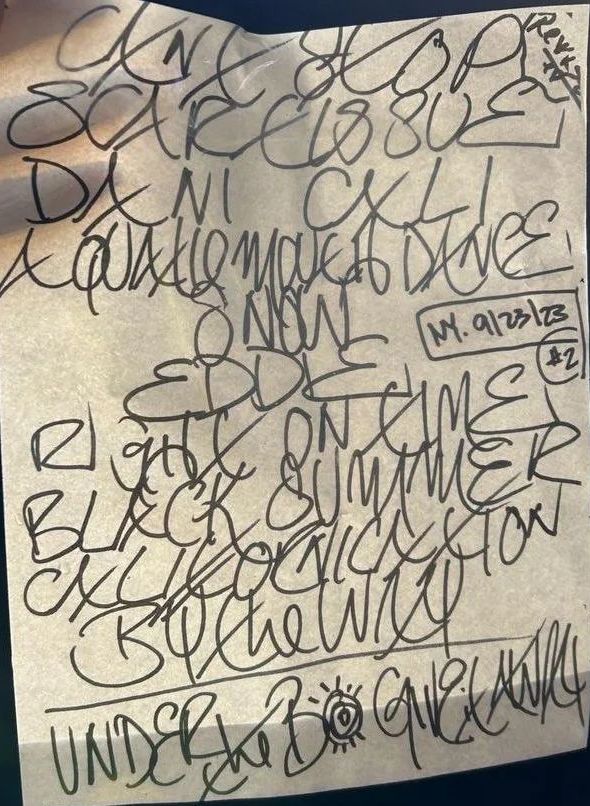 CAN'T STOP
SCAR TISSUE
DANI CALI
AQUATIC MOUTH DANCE
SNOW
NY. 9/23/23
#2
EDDIE
RIGHT ON TIME
BLACK SUMMER
CALIFORNICATION
BY the WAY
UNDER the B GIVE IT AWAY